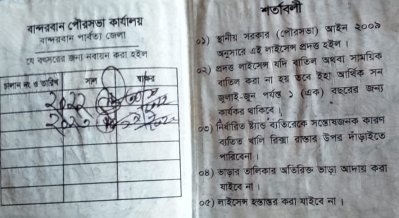 বান্দরবান পৌরসভা কার্যালয়
বান্দরবান পার্বত্য জেলা
যে বৎসরের জন্য নবায়ন করা হইল
চালান নং ও তারিখ সাল স্বাক্ষর
২০২২
২০২৩
শর্তাবলী
০১) স্থানীয় সরকার (পৌরসভা) আইন ২০০৯
অনুসারে এই লাইসেন্স প্রদত্ত হইল ।
০২) প্রদত্ত লাইসেন্স যদি বাতিল অথবা সাময়িক
বাতিল করা না হয় তবে ইহা আর্থিক সন
জুলাই-জুন পর্যন্ত ১ (এক) বছরের জন্য
কার্যকর থাকিবে ।
০৩) নির্ধারিত ষ্ট্যান্ড ব্যতিরেকে সন্তোষজনক কারণ
ব্যতিত খালি রিক্সা রাস্তার উপর দাঁড়াইতে
পারিবেনা ।
০৪) ভাড়ার তালিকার অতিরিক্ত ভাড়া আদায় করা
যাইবে না ।
০৫) লাইসেন্স হস্তান্তর করা যাইবে না ।